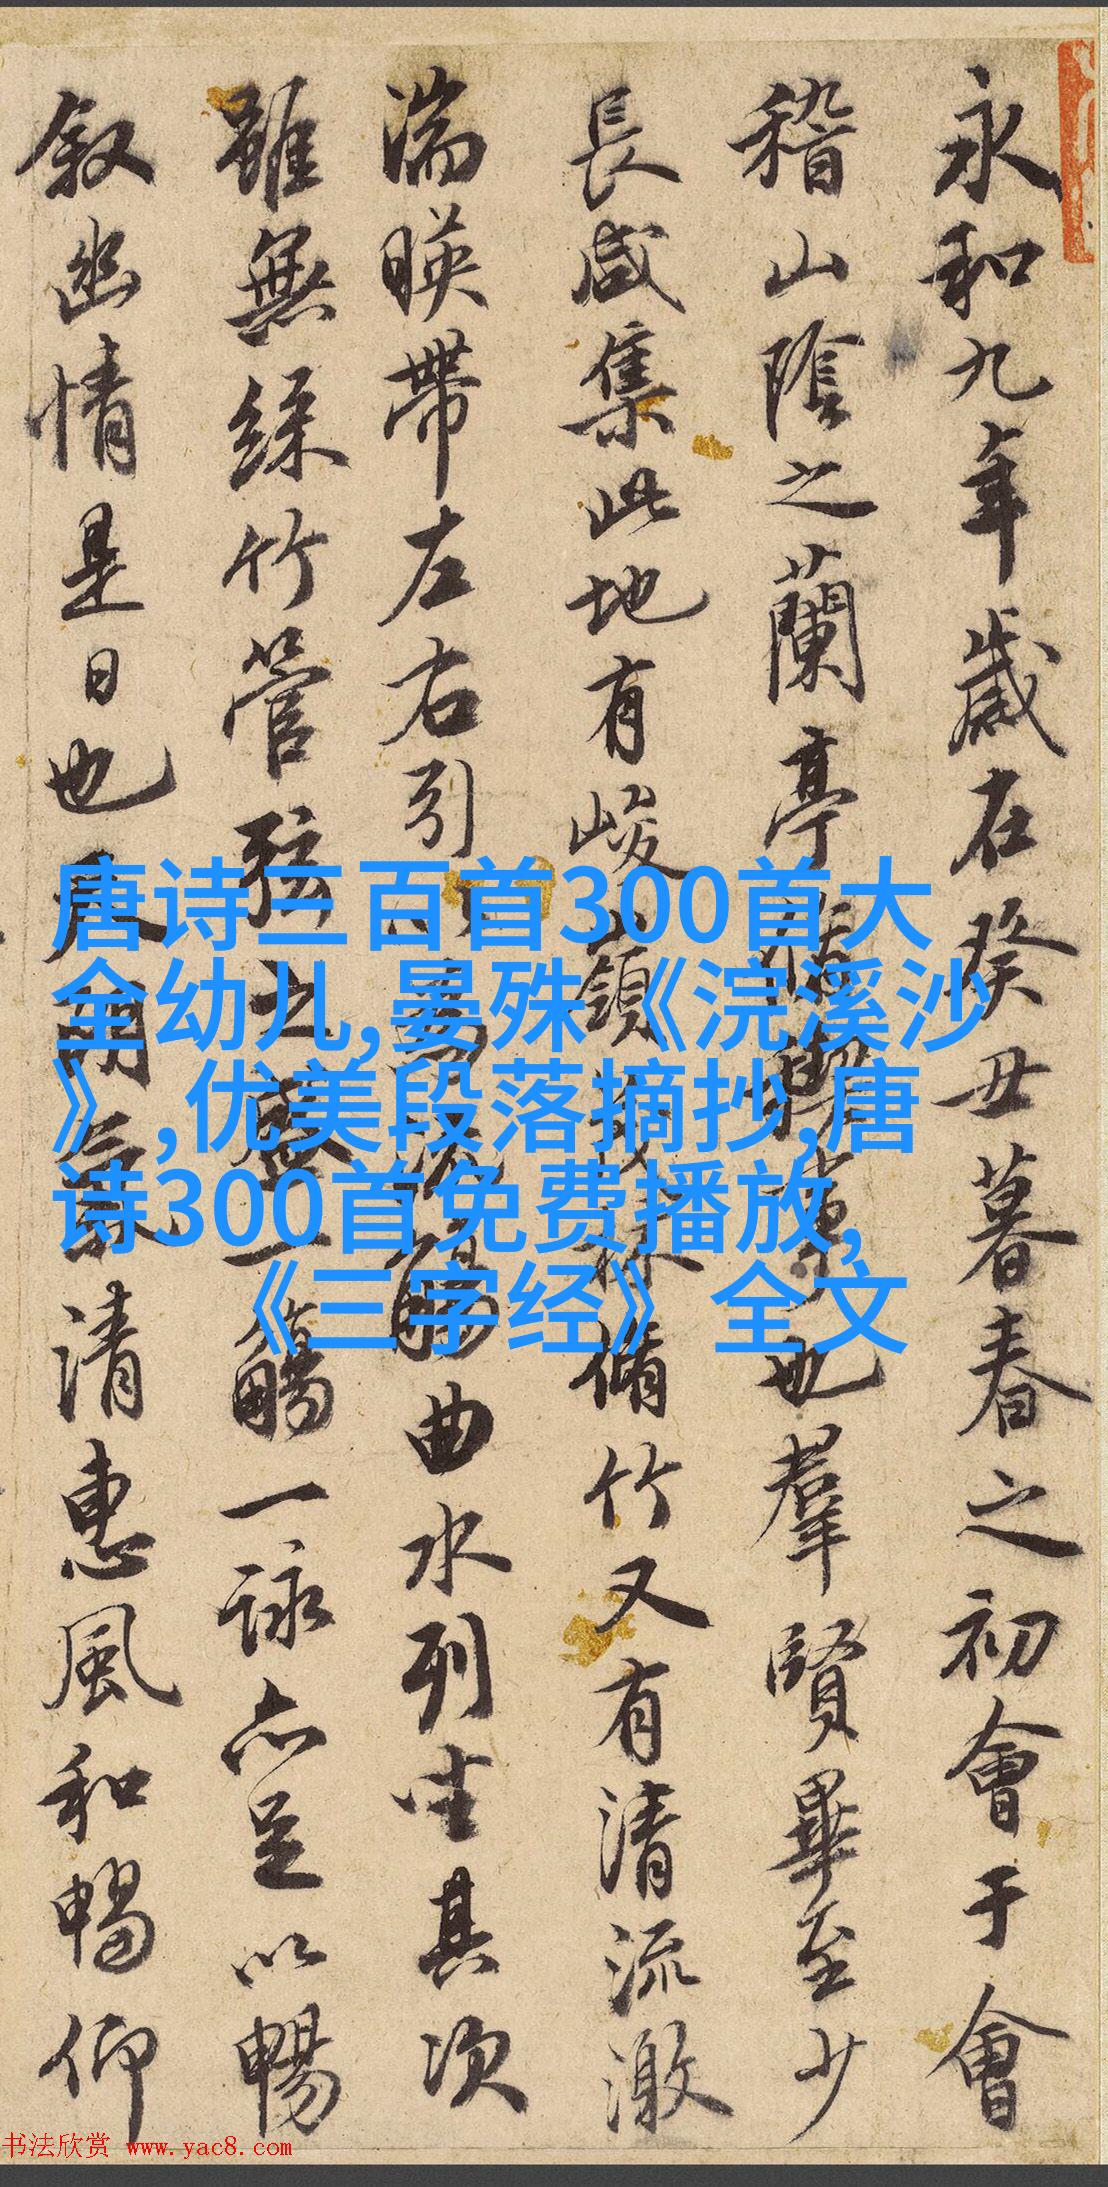 永和九年歲在癸丑暮春之初會于會
稽山陰之蘭亭脩禊事也羣賢畢至少
長咸集此地有峻嶺茂林脩竹又有清流激
湍暎帶左右引以為流觴曲水列坐其次
雖無絲竹管弦之盛一觴一詠亦足以暢
叙幽情是日也天朗氣清惠風和暢仰
唐诗三百首300首大
全幼儿,晏殊《浣溪沙
》,优美段落摘抄,唐
诗300首免费播放,
《三字经》全文
书法欣赏 www.yac8.com